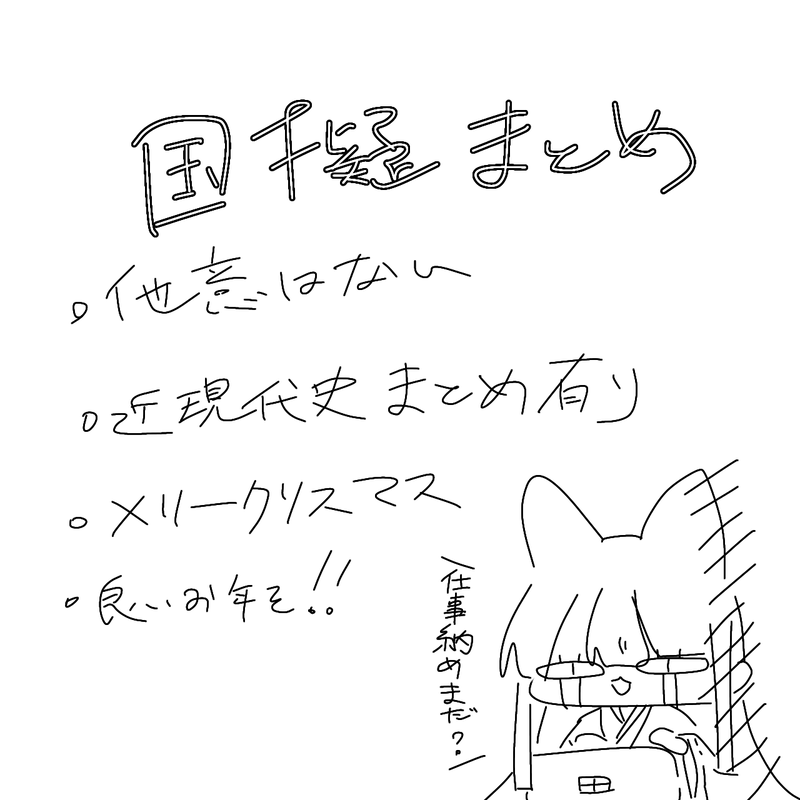 国擬まとめ
他意はない
近現代史まとめ有り
メリークリスマス
良いお年を!!
仕事納めまだ?